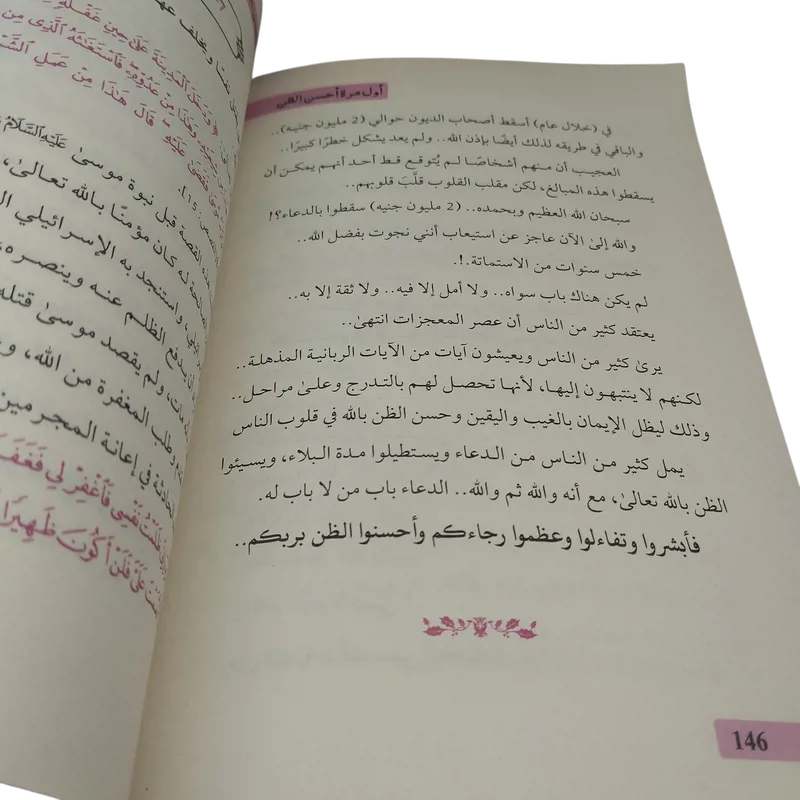 أول مرة أحسن الظن
في (خلال عام) أسقط أصحاب الديون حوالي (2 مليون جنيه)..
والباقي في طريقه لذلك أيضًا بإذن الله.. ولم يعد يشكل خطرًا كبيرًا..
العجيب أن منهم أشخاصًا لم يُتوقع قط أحد أنهم يمكن أن
يسقطوا هذه المبالغ، لكن مقلب القلوب قلَّبَ قلوبهم..
سبحان الله العظيم وبحمده.. (2 مليون جنيه) سقطوا بالدعاء؟!
والله إلىٰ الآن عاجز عن استيعاب أنني نجوت بفضل الله..
خمس سنوات من الاستماتة.!.
لم يكن هناك باب سواه.. ولا أمل إلا فيه.. ولا ثقة إلا به..
يعتقد كثير من الناس أن عصر المعجزات انتهىٰ..
يرىٰ كثير من الناس ويعيشون آيات من الآيات الربانية المذهلة..
لكنهم لا ينتبهون إليها، لأنها تحصل لهم بالتدرج وعلىٰ مراحل..
وذلك ليظل الإيمان بالغيب واليقين وحسن الظن بالله في قلوب الناس
يمل كثير من الناس من الدعاء ويستطيلوا مدة البلاء، ويسيئوا
الظن بالله تعالىٰ، مع أنه والله ثم والله.. الدعاء باب من لا باب له.
فأبشروا وتفاءلوا وعظموا رجاءكم وأحسنوا الظن بربكم..
146
القصة قبل نبوة موسىٰ عَلَيْهِ السَّلَامُ
له كان مؤمنًا بالله تعالىٰ،
واستنجد به الإسرائيلي
يدفع الظلم عنه وينصره،
ولم يقصد موسىٰ قتله
وطلب المغفرة من الله،
في إعانة المجرمين
نَفْسِي فَاغْفِرْ لِي فَغَفَرَ
عَلَيَّ فَلَنْ أَكُونَ ظَهِيرًا